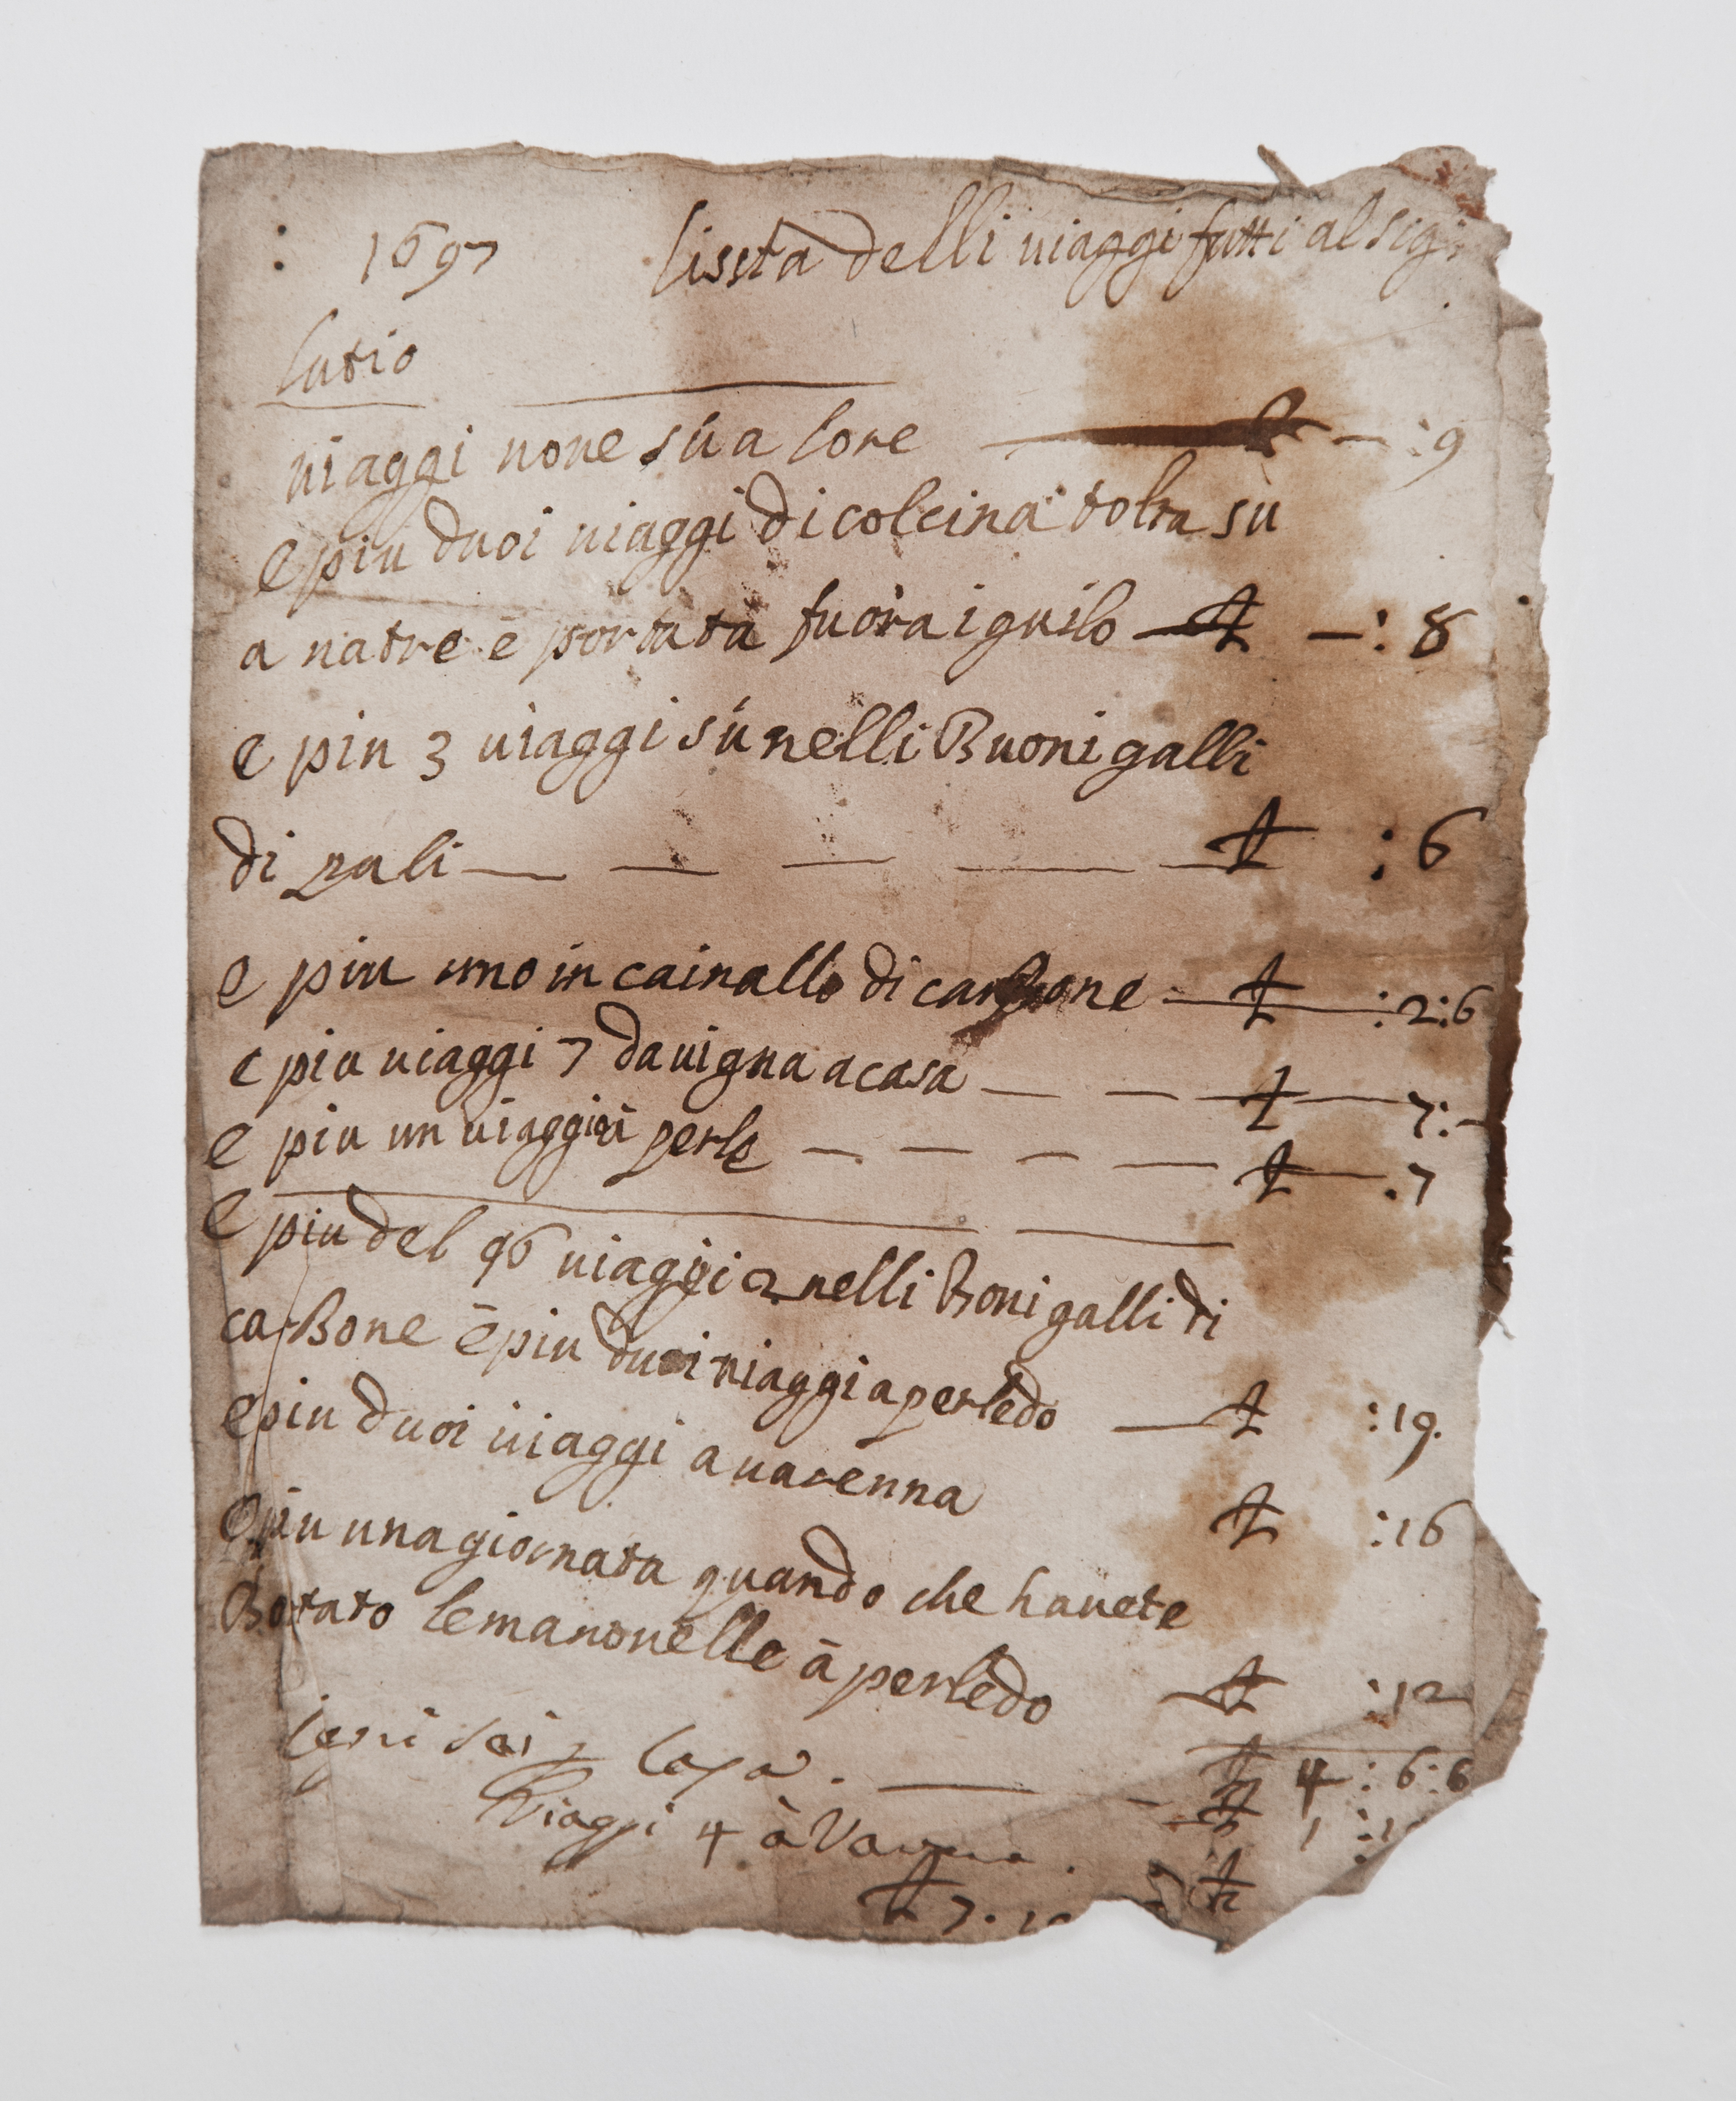 1697 lissta delli uiaggi fatti al sig:
lutio
uiaggi noue sú a lore £ — :9
e piu duoi uiaggi di colcina tolta sù
a natre e portata fuora i guilo — £ — : 8
e piu 3 uiaggi sú nelli Buoni galli
di pali — — — — £ : 6
e piu uno in cainallo di carbone — £ : 2:6
e piu uiaggi 7 da uigna a casa — — £ — 7:-
e piu un uiaggio perle — — — — £ — .7
e piu del 96 uiaggi 2 nelli Boni galli di
carBone e piu duoi uiaggi a perledo — £ :19.
e piu duoi uiaggi a uarenna £ :16
e piu una giornata quando che hauete
Botato le manouelle à perledo £ :12
sei £ 4 : 6:6
Viaggi 4 à £ 1
£ 7. £